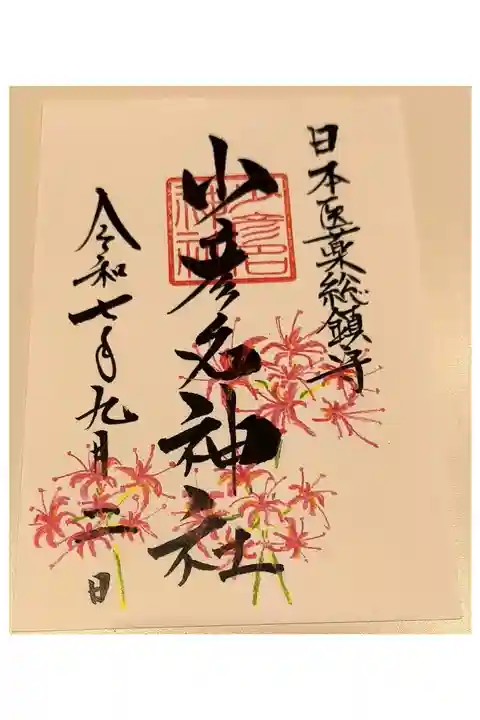 日本医薬総鎮守
少彦名神社
令和七年九月二日